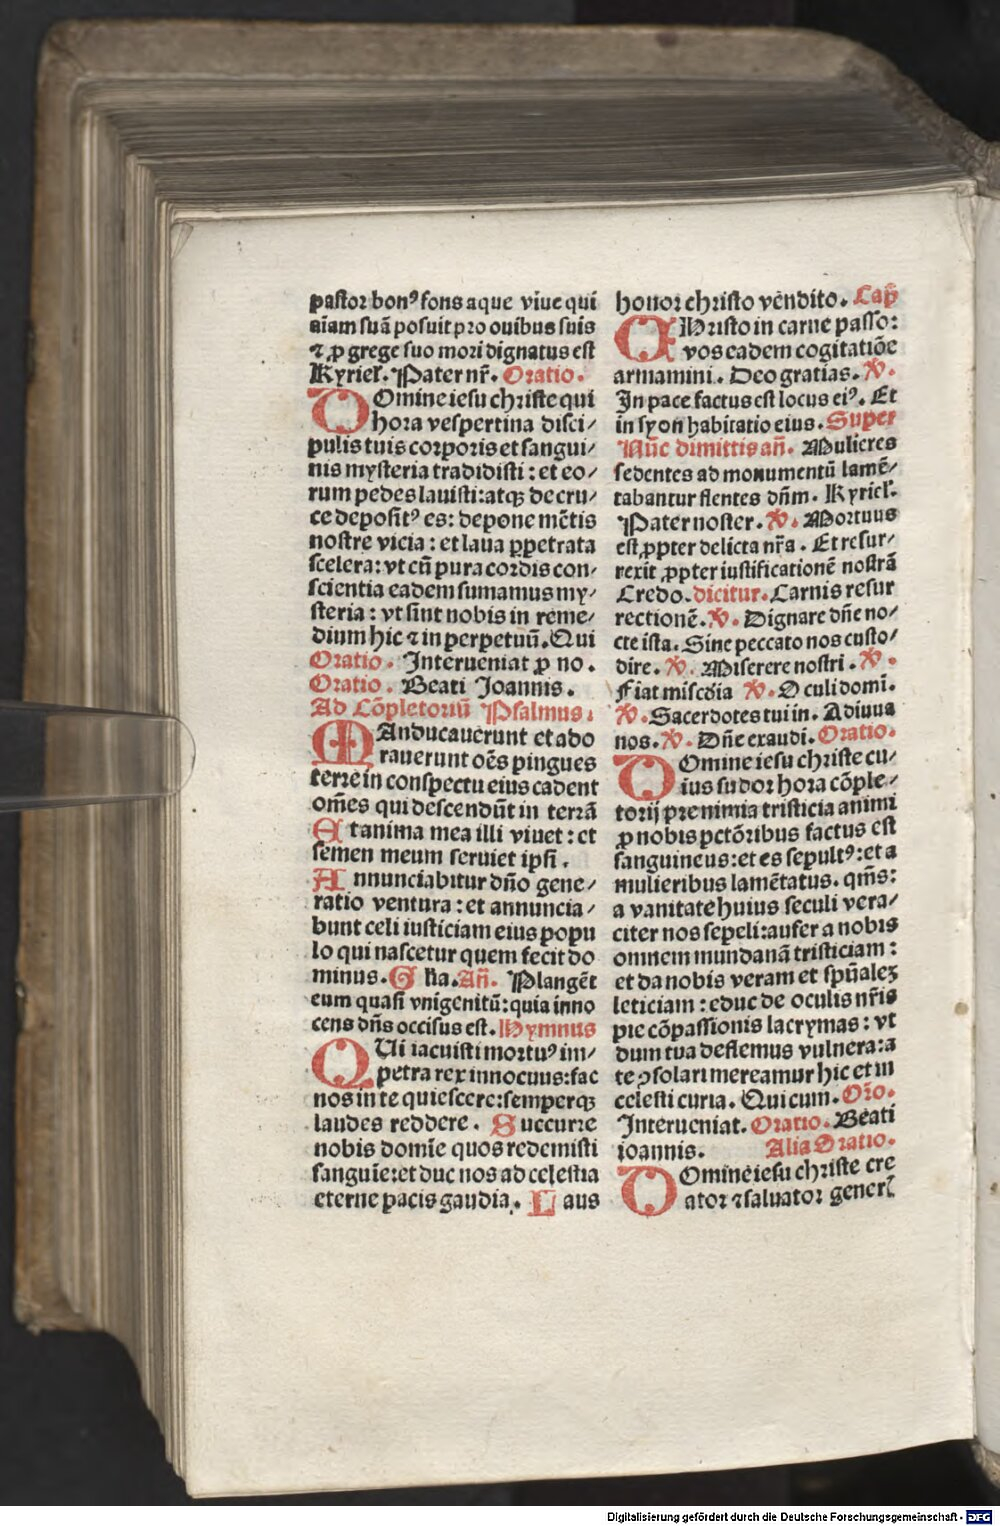 pastor bonꝰ fons aque viue qui
aı̄am suā posuit pro ouibus suis
⁊ ꝓ grege suo mori dignatus est
Kyriel'. Pater nr̄. Oratio.
DOmine iesu christe qui
hora vespertina disci/
pulis tuis corporis et sangui/
nis mysteria tradidisti : et eo/
rum pedes lauisti: atqꝫ de cru/
ce depositꝰ es: depone mētis
nostre vicia : et laua ꝑpetrata
scelera: vt cū pura cordis con/
scientia eadem sumamus my/
steria : vt sint nobis in reme/
dium hic ⁊ in perpetuū. Qui
Oratio. Interueniat ꝓ no.
Oratio. Beati Joannis.
Ad Cōpletoriū Psalmus.
MAnducauerunt et ado
rauerunt oēs pingues
terre in conspectu eius cadent
om̄es qui descendūt in terrā
Et anima mea illi viuet : et
semen meum seruiet ipsi.
Annunciabitur dn̄o gene/
ratio ventura : et annuncia/
bunt celi iusticiam eius popu
lo qui nascetur quem fecit do
minus. Gl'ia. An̄. Plangēt
eum quasi vnigenitū: quia inno
cens dn̄s occisus est. Hymnus
QUi iacuisti mortuꝰ im/
petra rex innocuus: fac
nos in te quiescere: semperqꝫ
laudes reddere. Succurre
nobis domı̄e quos redemisti
sanguı̄e: et duc nos ad celestia
eterne pacis gaudia. Laus
honor christo vēndito. Cap̄
CHristo in carne passo:
vos eadem cogitatiōe
armamini. Deo gratias. V̷.
In pace factus est locus eiꝰ. Et
in syon habitatio eius. Super
Nūc dimittis an̄. Mulieres
sedentes ad monumentū lamē/
tabantur flentes dn̄m. Kyriel'.
Pater noster. V̷. Mortuus
est ꝓpter delicta nr̄a. Et resur/
rexit ꝓpter iustificationē nostrā
Credo. dicitur. Carnis resur
rectionē. V̷. Dignare dn̄e no/
cte ista. Sine peccato nos custo/
dire. V̷. Miserere nostri. V̷.
Fiat mise͞dia V̷. Oculi domi.
V̷. Sacerdotes tui in. Adiuua
nos. V̷. Dn̄e exaudi. Oratio.
DOmine iesu christe cu/
ius sudor hora cōple/
torij pre nimia tristicia animi
ꝓ nobis pctōribus factus est
sanguineus: et es sepultꝰ: et a
mulieribus lamētatus. qm̄s:
a vanitate huius seculi vera/
citer nos sepeli: aufer a nobis
omnem mundanā tristiciam :
et da nobis veram et spūaleꝫ
leticiam : educ de oculis nr̄is
pie cōpassionis lacrymas : vt
dum tua deflemus vulnera: a
te ꝯsolari mereamur hic et in
celesti curia. Qui cum. Or̄o.
Interueniat. Oratio. Beati
ioannis. Alia Oratio.
DOmine iesu christe cre
ator ⁊ saluator generl'
Digitalisierung gefördert durch die Deutsche Forschungsgemeinschaft - DFG